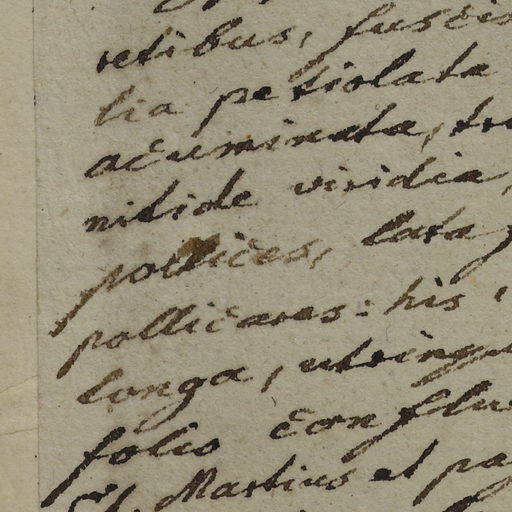 retibus, fuscis
lia petiolata
acuminata,
nitide viridia,
pollices, lata
pollicares: his
longa, utrinque
folio conflu
Cl. Martius et pa